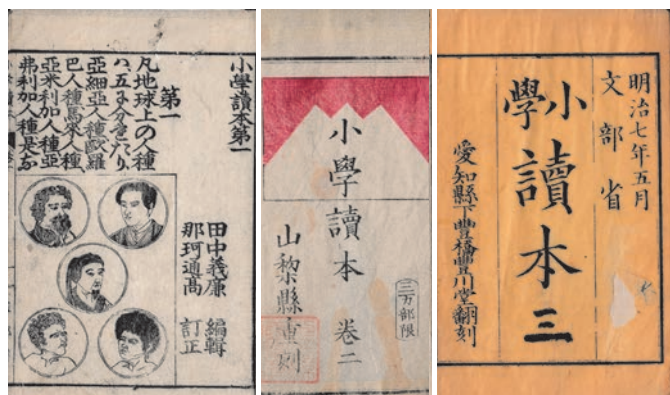 小學讀本第一
田中義廉 編輯
那珂通高 訂正
第一
凡地球上の人種
ハ、五に分れたり、
亞細亞人種歐羅
巴人種馬來人種、
亞米利加人種亞
弗利加人種是な
小學讀本 巻二
山梨縣重刻
三万部限
明治七年五月
文部省
小學讀本三
愛知縣下豊橋豊川堂翻刻